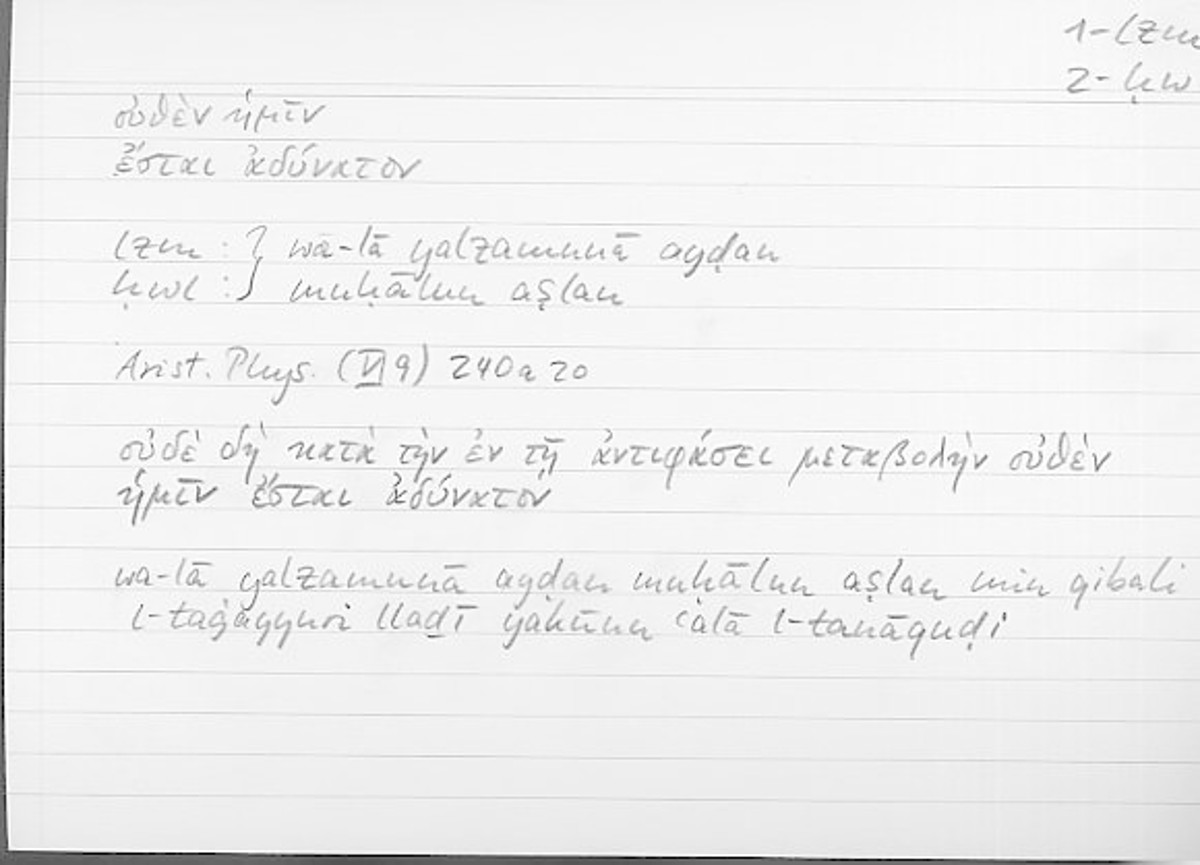 1-lzm
2-ḥw
οὐθὲν ἡμῖν
ἔσται ἀδύνατον
lzm : } wa-lā yalzamunā ayḍan
ḥwl : } muḥālun aṣlan
Arist. Phys. (VI 9) 240a20
οὐδὲ δὴ κατὰ τὴν ἐν τῇ ἀντιφάσει μεταβολὴν οὐθὲν
ἡμῖν ἔσται ἀδύνατον
wa-lā yalzamunā ayḍan muḥālun aṣlan min qibali
l-taġayyuri lladī yakūnu ʿalā l-tanāquḍi